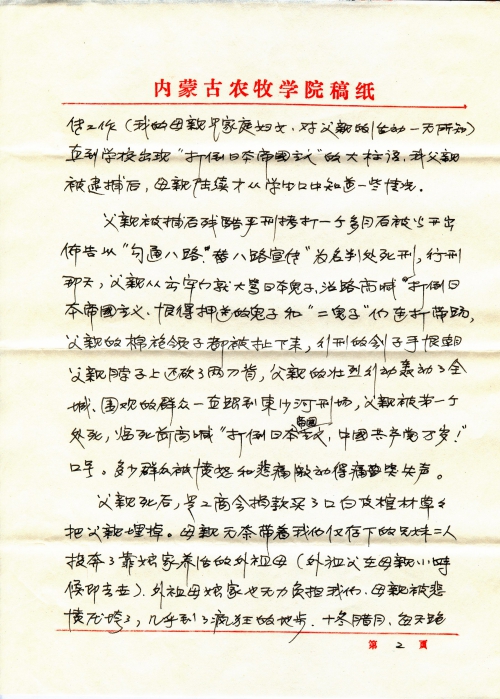 内蒙古农牧学院稿纸
传工作（我的母亲是家庭妇女，对父亲的活动一无所知）
直到学校出现“打倒日本帝國主义”的大标语，我父亲
被逮捕后，母亲陆续才从学生口中知道一些情况。
父亲被捕后残酷严刑拷打一个多月后被公开出
佈告以“勾通八路”“替八路宣传”为名判处死刑，行刑
那天，父亲从出牢门就大骂日本鬼子，沿路高喊“打倒日
本帝國主义，恨得押送的鬼子和“二鬼子”们连打带踢，
父亲的棉袍领子都被扯下来，行刑的刽子手恨朝
父亲脖子上还砍了两刀背，父亲的壮烈行动轰动了全
城，围观的群众一直跟到東沙河刑场，父亲被第一个
处死，临死前高喊“打倒日本帝國主义，中國共产党万岁！”
口号。多少群众被愤怒和悲痛激动得痛哭失声。
父亲死后，是工商会捐款买了口白皮棺材草草
把父亲埋掉。母亲无奈带着我们仅存下的兄妹二人
投奔了靠娘家养活的外祖母（外祖父在母亲小时
候即去世）。外祖母娘家也无力负担我们，母亲被悲
愤压垮了，几乎到了疯狂的地步。十冬腊月，每天跪
第 2 页